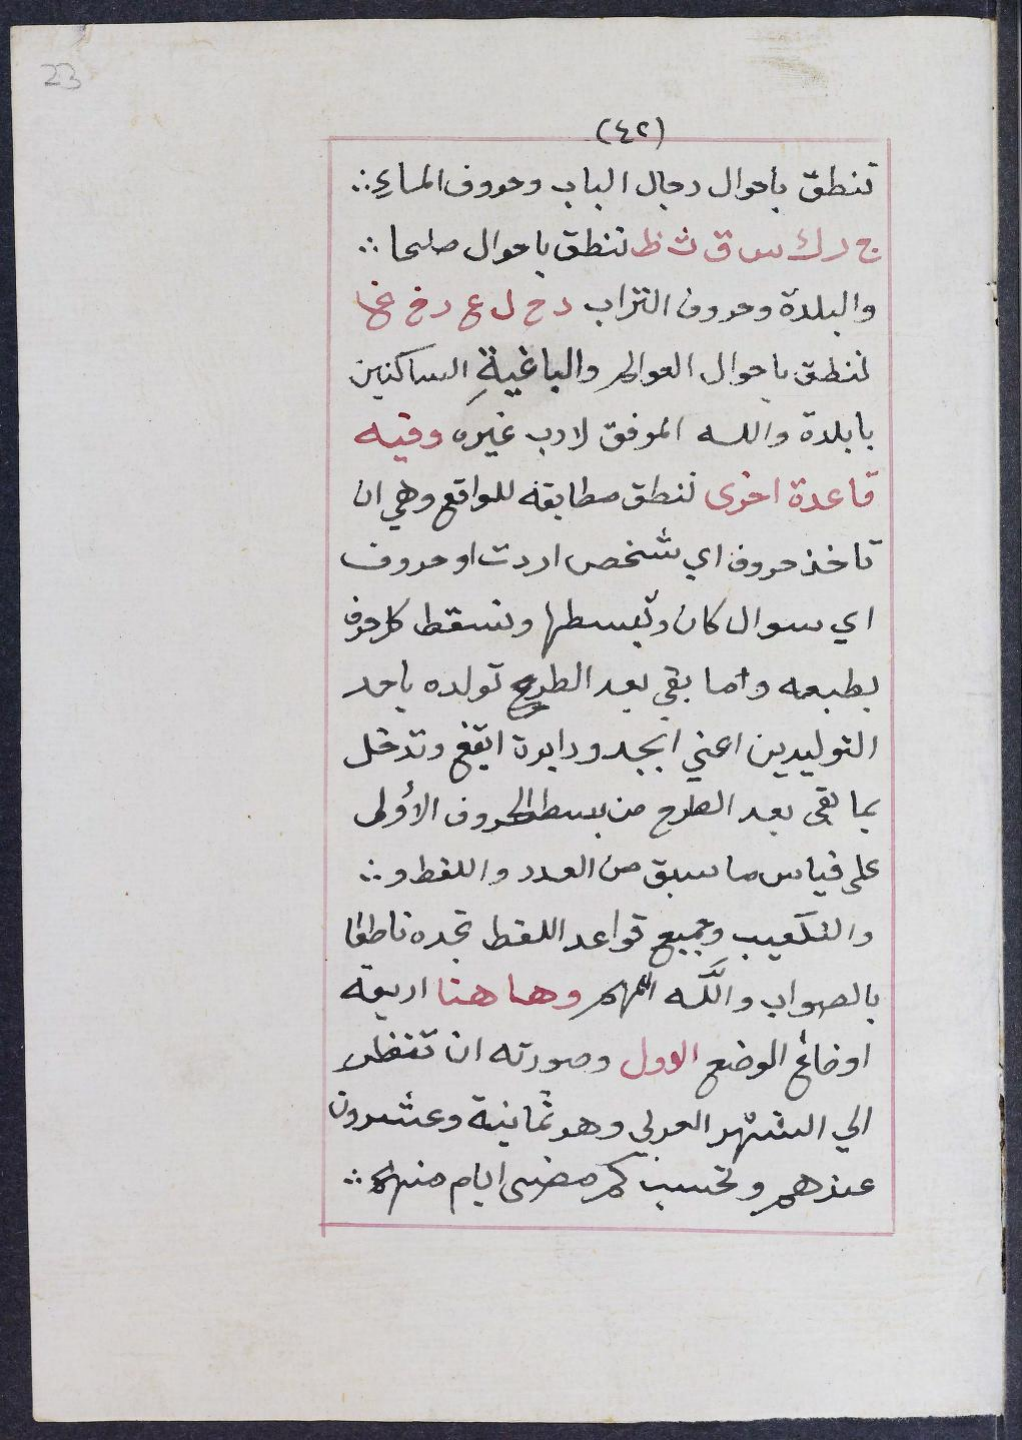 23
(٤٢)
تنطق باحوال رجال الباب وحروف الماء ∴
ج ز ك س ق ث ظ تنطق باحوال صلحا ∴
والبلدة وحروف التراب د ح ل ع ر خ غ
تنطق باحوال العوالم والباغية الساكنين
بابلدة والله الموفق لا رب غيره وفيه
قاعدة اخرى تنطق مطابقة للواقع وهي ان
تاخذ حروف اي شخص اردت او حروف
اي سوال كان وتبسطها وتسقط كل حرف
بطبعه وما بقي بعد الطرح تولده باحد
التوليدين اعني ابجد ودايرة ايقغ وتدخل
بما بقي بعد الطرح من بسط الحروف الأولى
على قياس ما سبق من العدد واللقط و ∴
والتكعيب وجميع قواعد اللقط تجده ناطقا
بالصواب والله الملهم وها هنا اربعة
اوضاع الوضع الاول وصورته ان تنظر
الي الشهر العربي وهو ثمانية وعشرون
عندهم وتحسب كم مضى ايام منه ∴